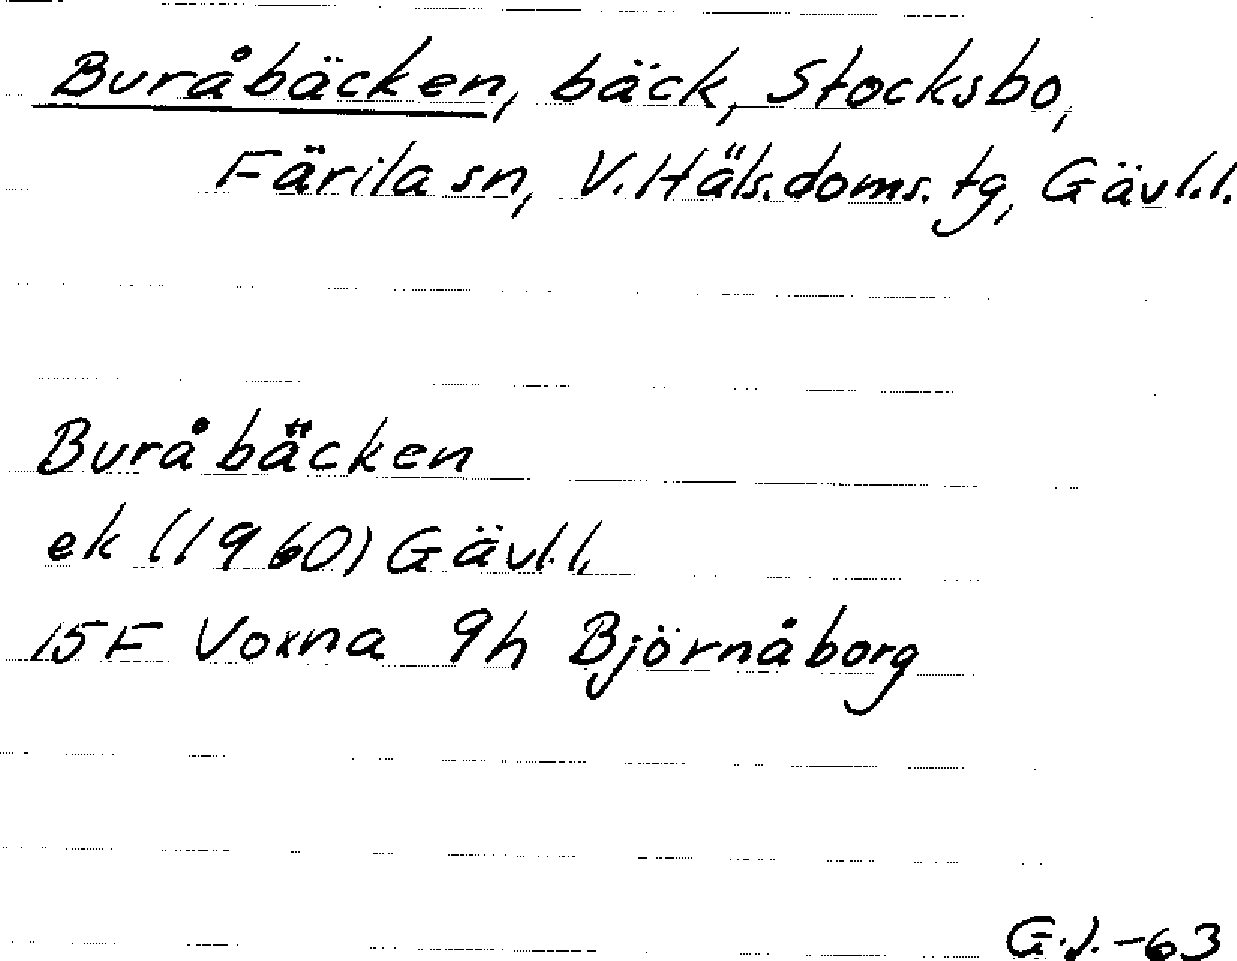 Buråbäcken, bäck, Stocksbo,
Färila sn, V. Häls. doms. tg, Gävl. l.
Buråbäcken
ek (1960) Gävl. l.
15F Voxna 9h Björnåborg
G.J. -63